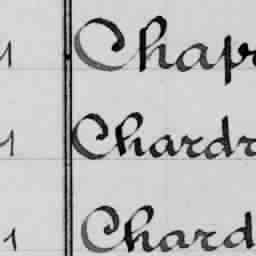 1 Chap
1 Chard
1 Chard